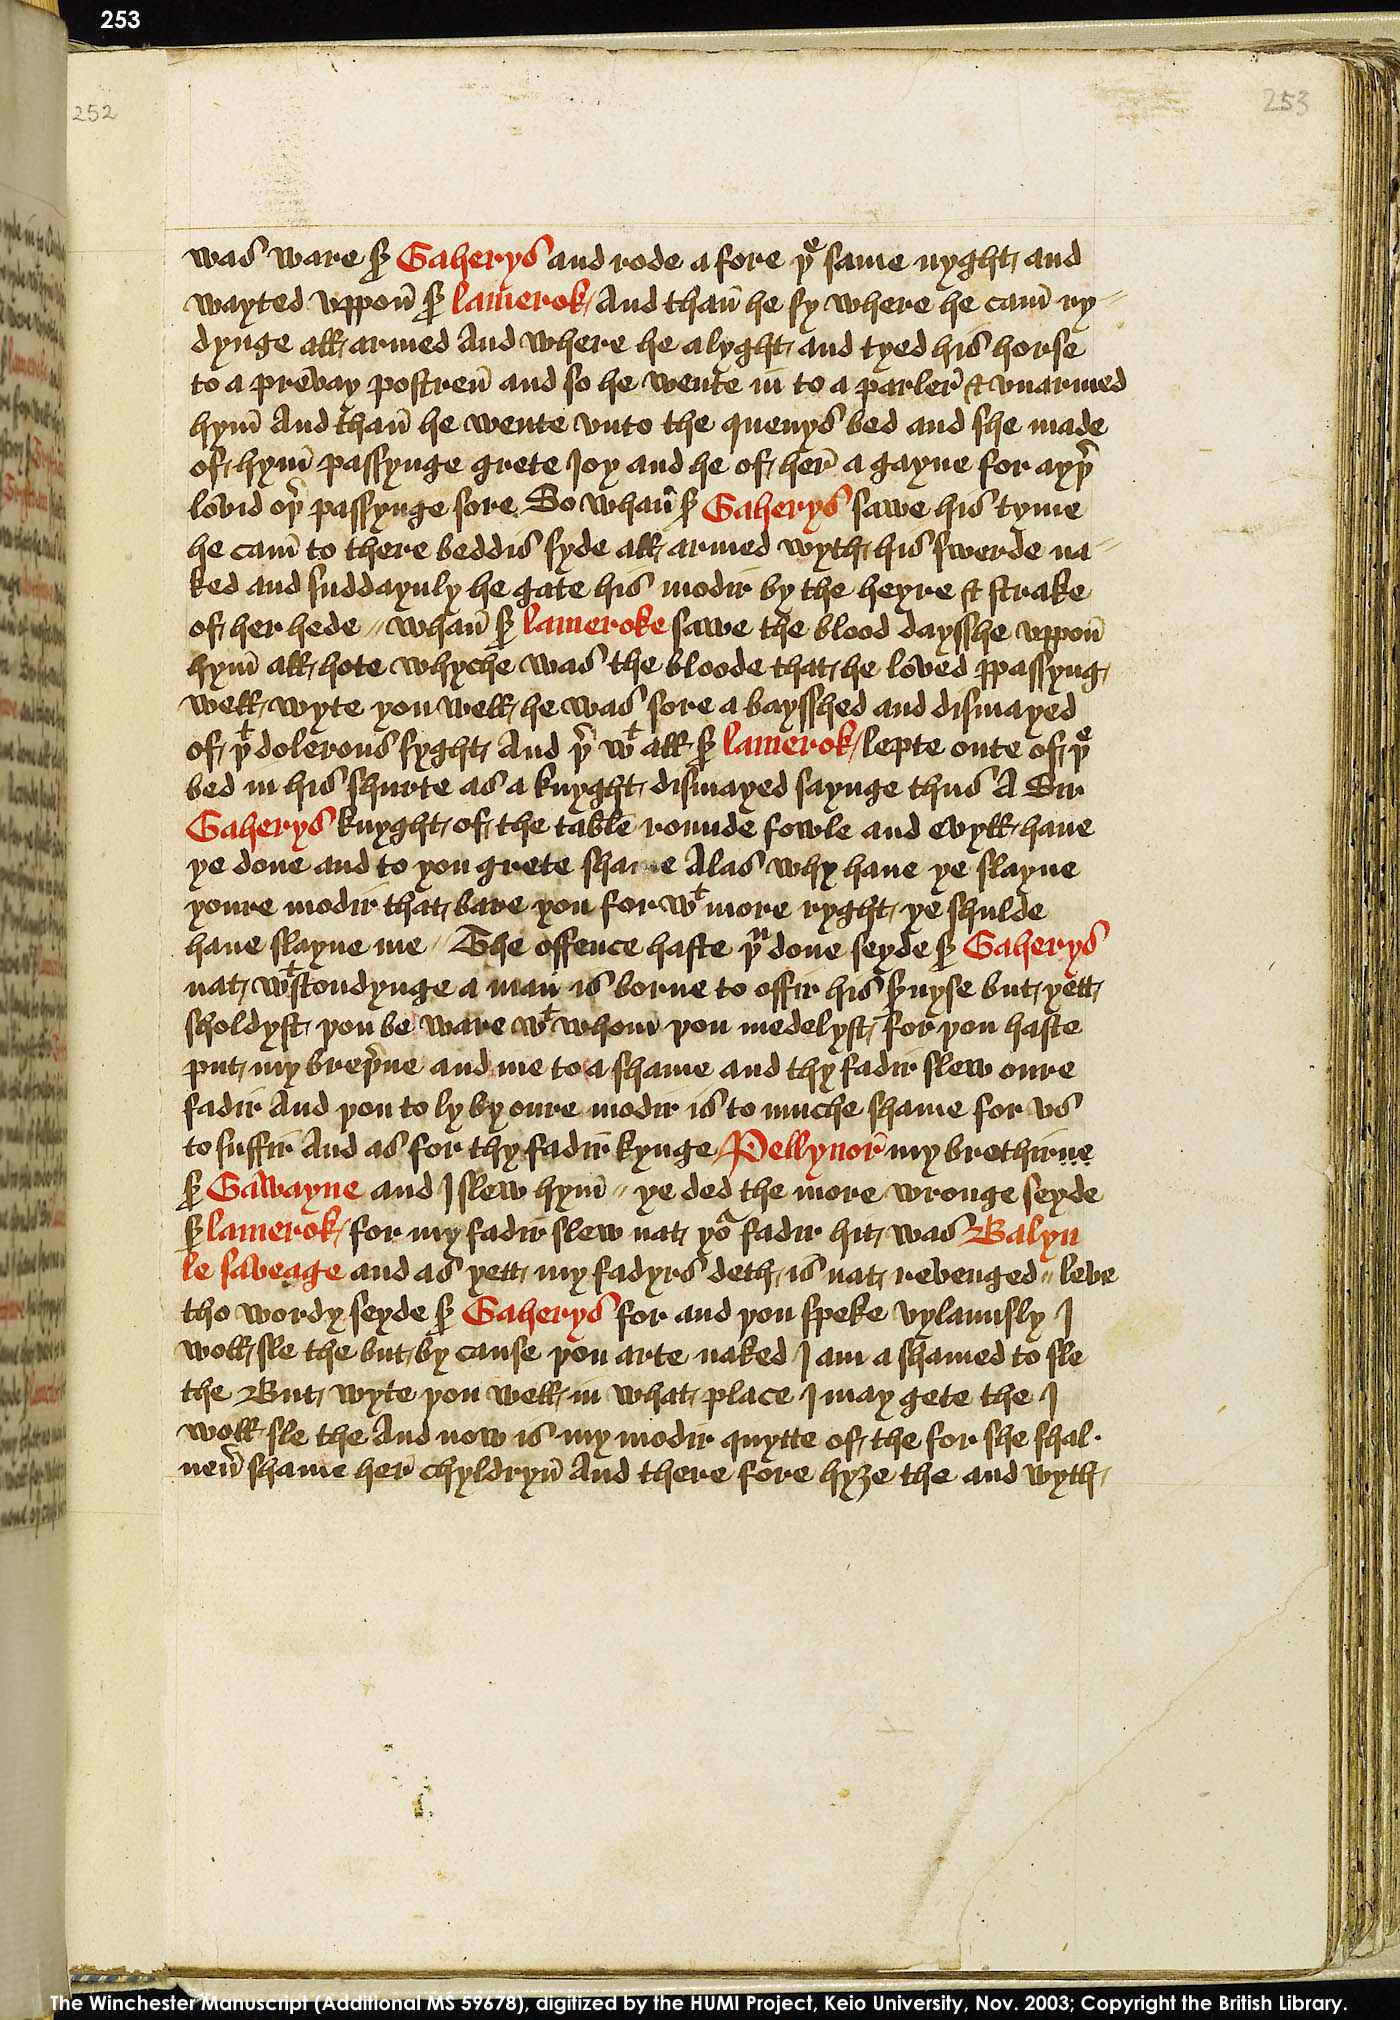 253
252
253
was ware sᵣ Gaherys and rode a fore þᵉ same nyght and
wayted vppoū sᵣ lamerok And thaū he sy where he cam̄ ry=
dynge all armed And where he alyght and tyed his horse
to a prevay postreū and so he wente in to a parler̄ & vnarmed
hym̄ And thaū he wente vnto the quenys bed and she made
of hym̄ passynge grete Joy and he of her̄ a gayne for ayþʳ
lovid oþʳ passynge sore So whaū sᵣ Gaherys sawe his tyme
he cam̄ to there beddis syde all armed wyth his swerde na=
ked and suddaynly he gate his modir by the heyre & strake
of her hede // whaū sᵣ lameroke sawe the blood daysshe vppoū
hym̄ all hote whyche was the bloode that he loved passyng
well wyte you well he was sore a baysshed and dismayed
of þᵗ dolerous syght And þʳ wᵗ all sᵣ lamerok lepte oute of þᵉ
bed in his shurte as a knyght dismayed saynge thus A Sir
Gaherys knyght of the table rounde fowle and evyll haue
ye done and to you grete shame Alas why haue ye slayne
youre modir that bare you for wᵗ more ryght ye shulde
haue slayne me // The offence haste þᵘ done seyde sᵣ Gaherys
nat wᵗstondynge a man is borne to offir his sᵣuyse but yett
sholdyst þou be ware wᵗ whom þou medelyst for þou haste
put my breþʳne and me to a shame and thy fadir slew oure
fadir And þou to ly by oure modir is to muche shame for vs
to suffir And as for thy fadir kynge Pellynor̄ my brethirne
sᵣ Gawayne and I slew hym̄ // ye ded the more wronge seyde
sᵣ lamerok for my fadir slew nat yoᵃ fadir hit was Balyn
le saveage and as yett my fadyrs deth is nat revenged // leve
tho wordys seyde sᵣ Gaherys for and þou speke vylaunsly I
woll sle the but by cause þou arte naked I am a shamed to sle
the But wyte þou well in what place I may gete the I
woll sle the And now is my modir quytte of the for she shal
neuʳ shame her̄ chyldryū And there fore hyȝe the and wyth
The Winchester Manuscript (Additional MS 59678), digitized by the HUMI Project, Keio University, Nov. 2003; Copyright the British Library.